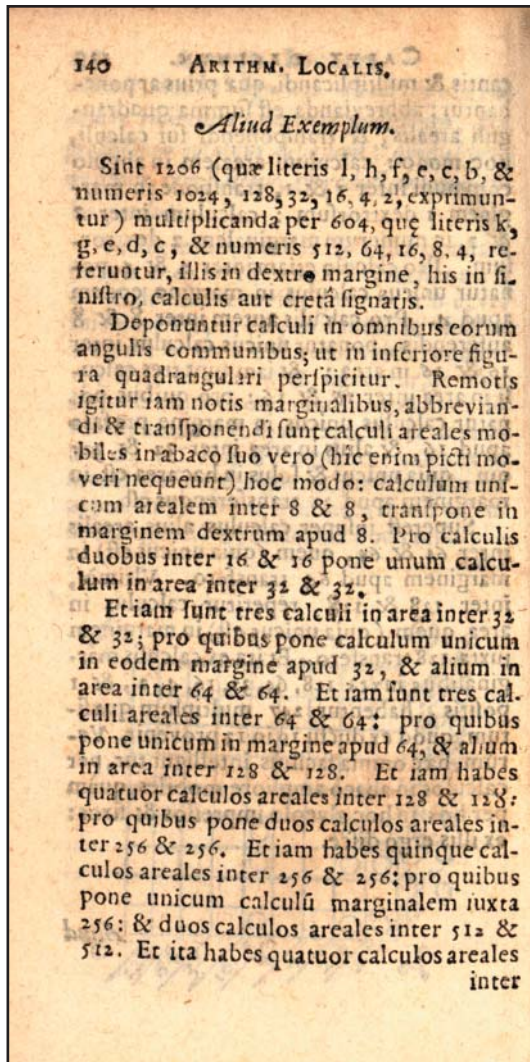 140 ARITHM. LOCALIS.
Aliud Exemplum.
Sint 1206 (quæ literis l, h, f, e, c, b, &
numeris 1024, 128, 32, 16, 4, 2, exprimun-
tur) multiplicanda per 604, quę literis k,
g, e, d, c, & numeris 512, 64, 16, 8, 4, re-
feruntur, illis in dextro margine, his in ſi-
niſtro, calculis aut cretâ ſignatis.
Deponuntur calculi in omnibus eorum
angulis communibus; ut in inferiore figu-
ra quadrangulari perſpicitur. Remotis
igitur iam notis marginalibus, abbrevian-
di & tranſponendi ſunt calculi areales mo-
biles in abaco ſuo vero (hic enim picti mo-
veri nequeunt) hoc modo: calculum uni-
cum arealem inter 8 & 8, tranſpone in
marginem dextrum apud 8. Pro calculis
duobus inter 16 & 16 pone unum calcu-
lum in area inter 32 & 32.
Et iam ſunt tres calculi in area inter 32
& 32; pro quibus pone calculum unicum
in eodem margine apud 32, & alium in
area inter 64 & 64. Et iam ſunt tres cal-
culi areales inter 64 & 64: pro quibus
pone unicum in margine apud 64, & alium
in area inter 128 & 128. Et iam habes
quatuor calculos areales inter 128 & 128:
pro quibus pone duos calculos areales in-
ter 256 & 256. Et iam habes quinque cal-
culos areales inter 256 & 256: pro quibus
pone unicum calculū marginalem iuxta
256: & duos calculos areales inter 512 &
512. Et ita habes quatuor calculos areales
inter